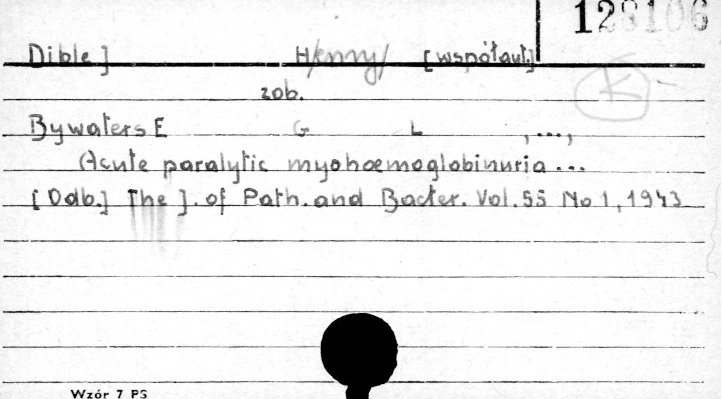 128106
Dible J H/enry/ [współaut.]
K
zob.
Bywaters E G L , ...,
Acute paralytic myohaemoglobinuria ...
[Odb.] The J. of Path. and Bacter. Vol. 55 No 1, 1943
Wzór 7 PS